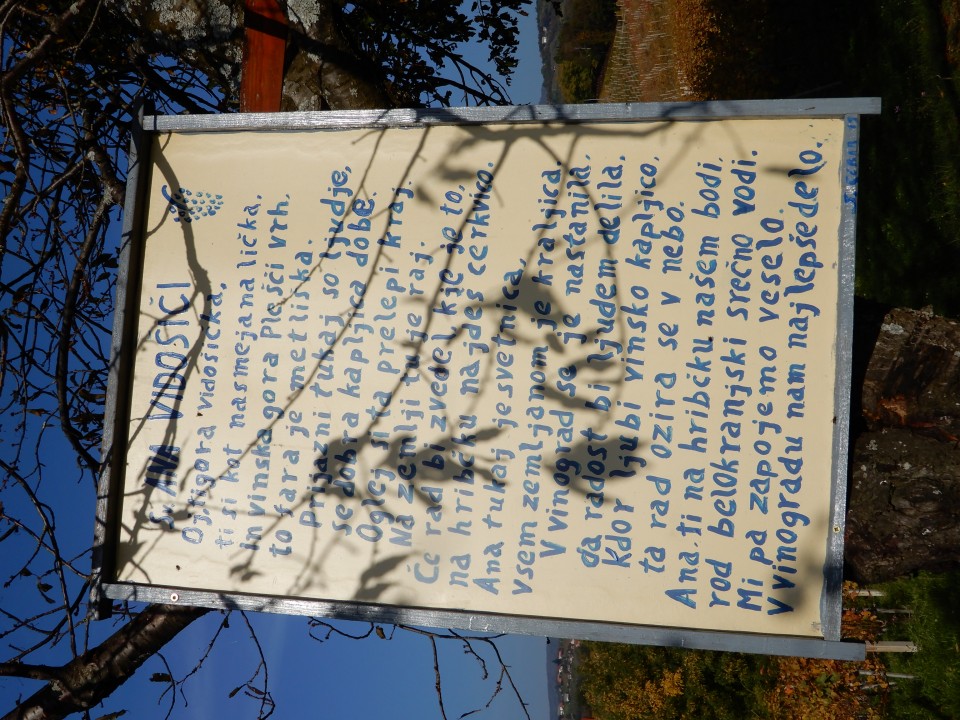 SV. ANA VIDOŠIČI
Oj ti gora vidošička,
ti si kot nasmejana lička,
in vinska gora Plešči vrh.
to fara je metliška.
Prijazni tukaj so ljudje,
se dobra kapljica dobe.
Oglej si ta prelepi kraj.
Na zemlji tu je raj.
Če rad bi zvedel kje je to,
na hribčku najdeš cerkvico.
Ana tukaj je svetnica,
vsem zemljanom je kraljica.
V vinograd se je nastanila,
da radost bi ljudem delila.
Kdor ljubi vinsko kapljico,
ta rad ozira se v nebo.
Ana, ti na hribčku našem bodi,
rod belokranjski srečno vodi.
Mi pa zapojemo veselo.
V vinogradu nam najlepše delo.